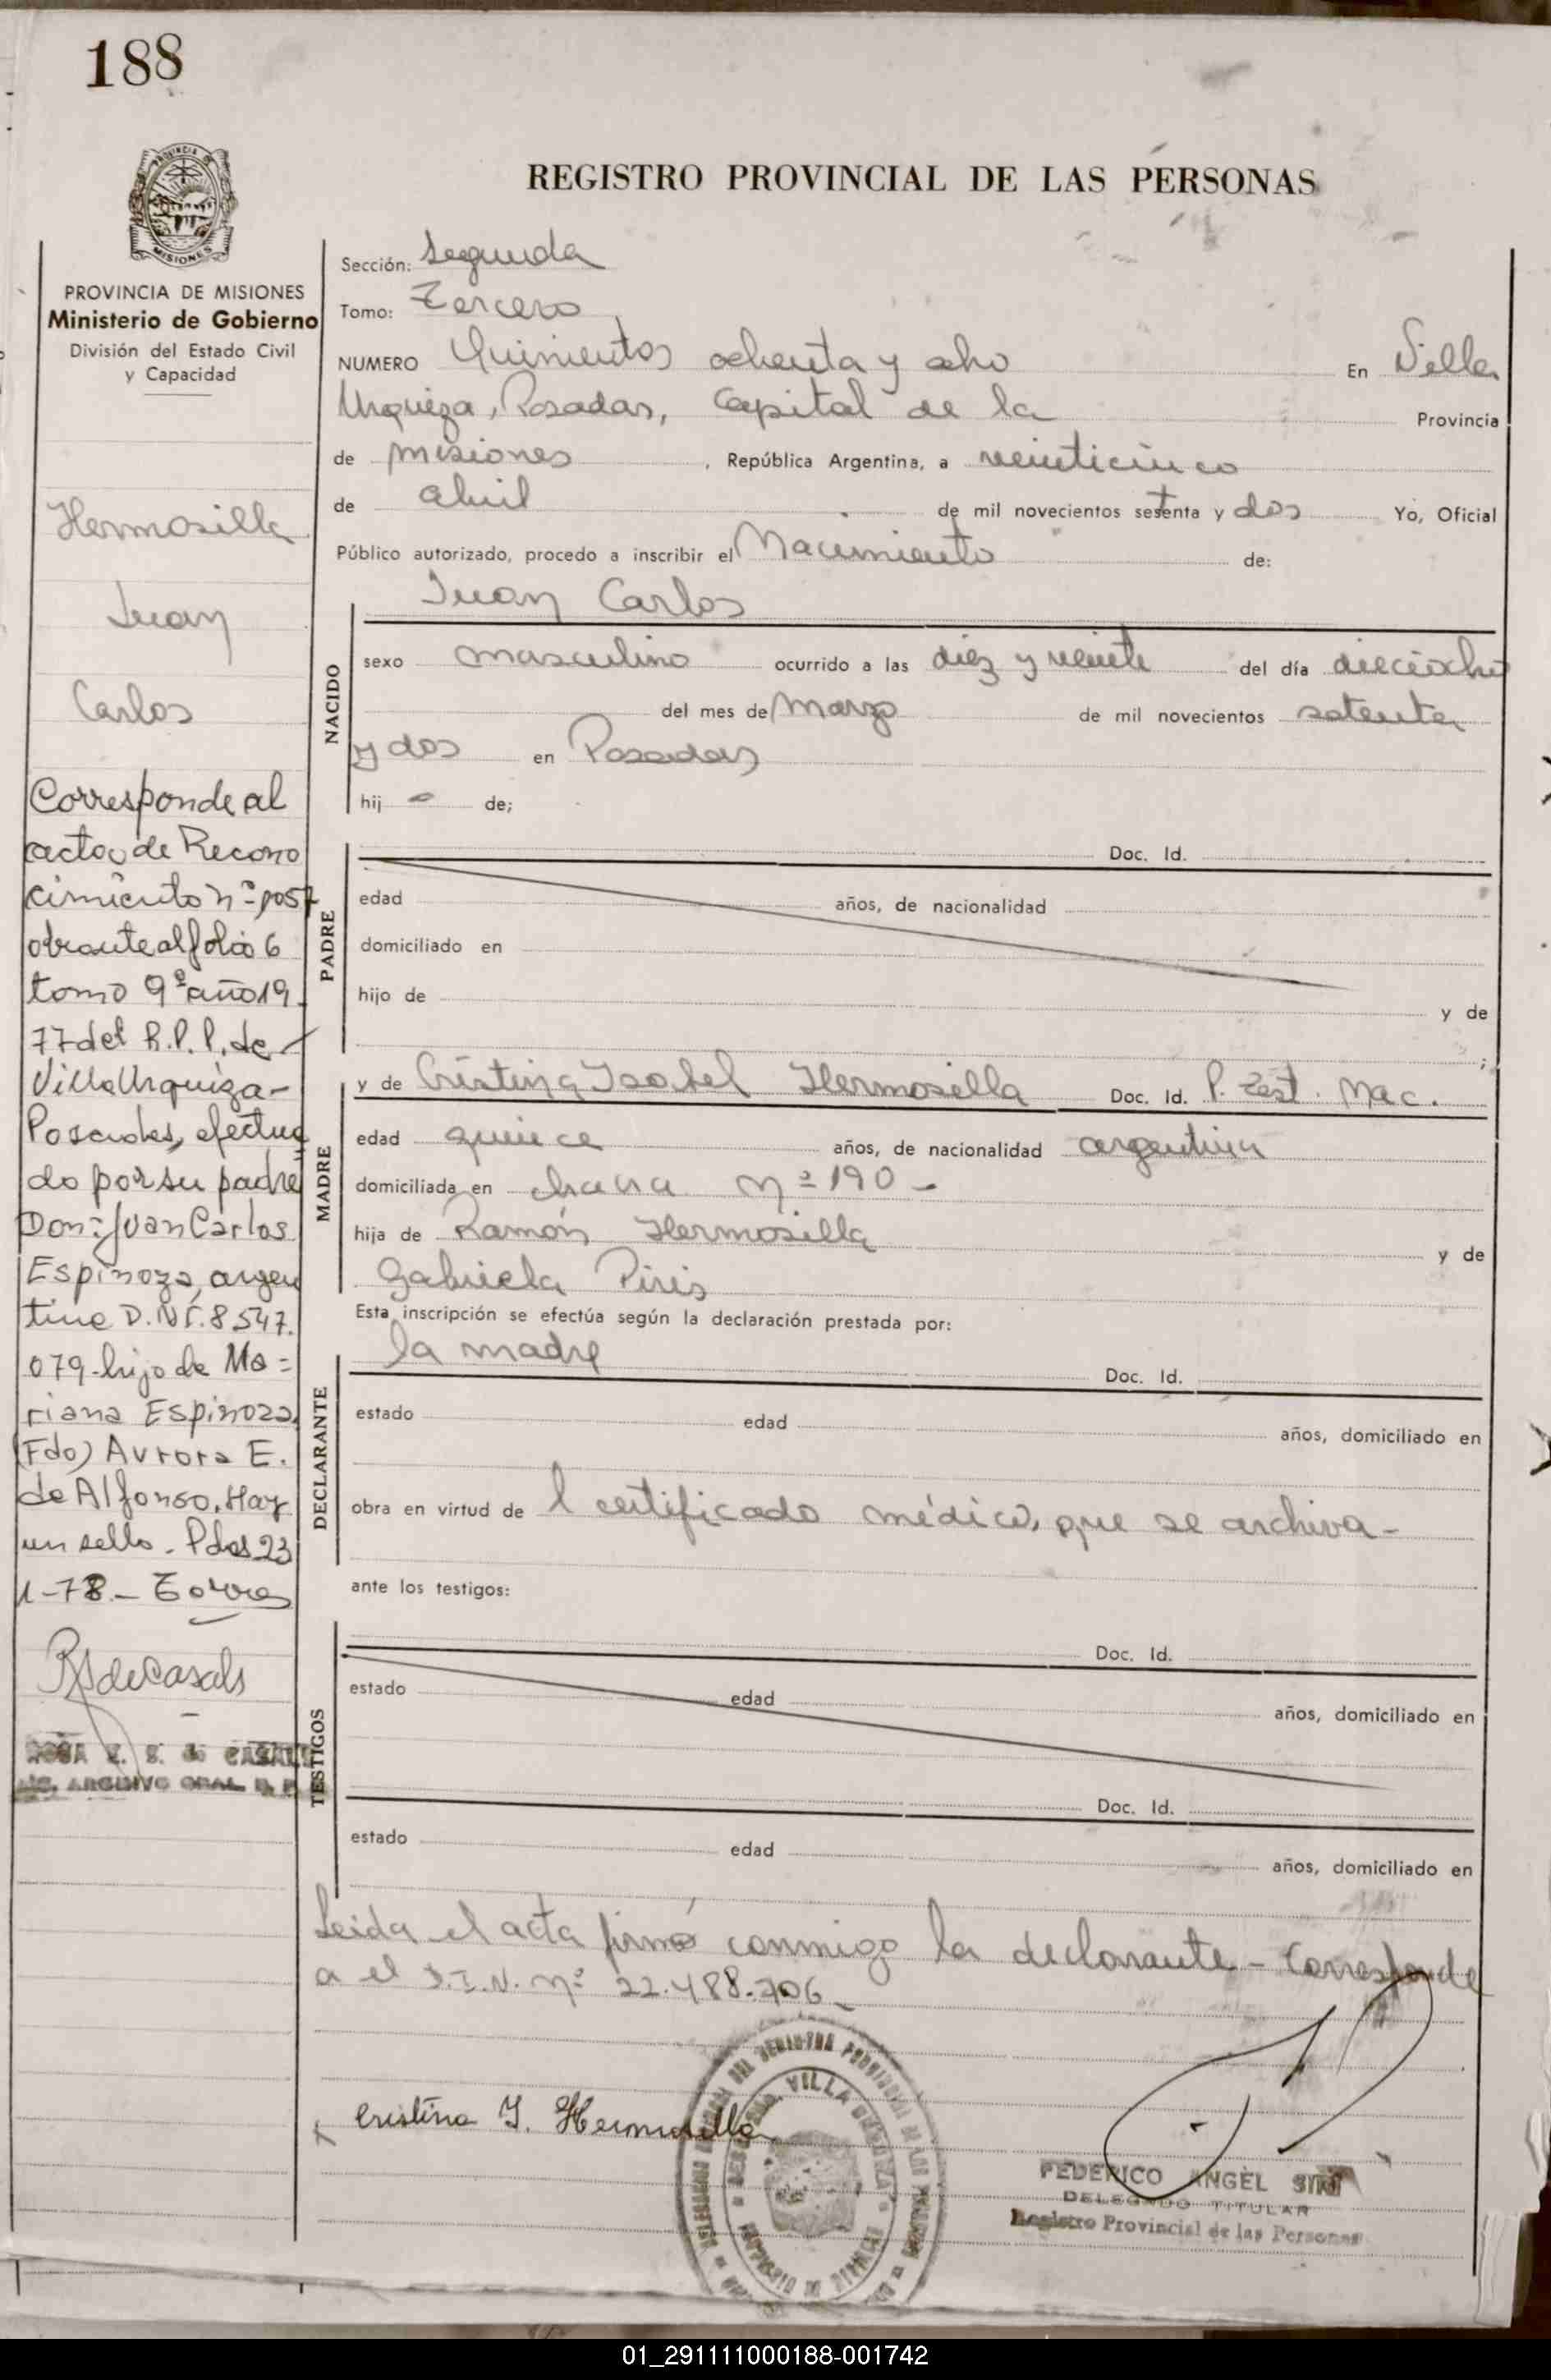 188
REGISTRO PROVINCIAL DE LAS PERSONAS
MISIONES
PROVINCIA DE MISIONES
Ministerio de Gobierno
División del Estado Civil
y Capacidad
Hermosilla
Juan
Carlos
Corresponde al
acta de Recono
cimiento nº 1057
obrante al folio 6
tomo 9º año 19
77 del R.P.P. de
Villa Urquiza-
Posadas, efectua
do por su padre
Don: Juan Carlos
Espinoza, argen
tino D.N.I. 8547.
079-hijo de Ma=
riana Espinoza.
(Fdo) Aurora E.
de Alfonso. Hay
un sello. Pdas 23
1-78.- Torres
RSdeCasals
ROSA E. S. de CASALS
ARCHIVO GRAL. R. P.
Sección: Segunda
Tomo: Tercero
NUMERO Quinientos ochenta y ocho En Villa
Urquiza, Posadas, Capital de la Provincia
de Misiones, República Argentina, a veinticinco
de abril de mil novecientos setenta y dos Yo, Oficial
Público autorizado, procedo a inscribir el Nacimiento de:
Juan Carlos
NACIDO
sexo masculino ocurrido a las diez y veinte del día dieciocho
del mes de Marzo de mil novecientos setenta
y dos en Posadas
hij - de;
PADRE
Doc. Id.
edad años, de nacionalidad
domiciliado en
hijo de y de
;
MADRE
y de Cristina Isabel Hermosilla Doc. Id. P. Test. Nac.
edad quince años, de nacionalidad argentina
domiciliada en chacra nº 190-
hija de Ramón Hermosilla y de
Gabriela Piris
Esta inscripción se efectúa según la declaración prestada por:
DECLARANTE
la madre Doc. Id.
estado edad años, domiciliado en
obra en virtud de l certificado médico, que se archiva-
ante los testigos:
TESTIGOS
Doc. Id.
estado edad años, domiciliado en
Doc. Id.
estado edad años, domiciliado en
Leida el acta firmó conmigo la declarante - Corresponde
a el D.I.N. nº 22.488.706-
Cristina I. Hermosilla
VILLA URQUIZA
FEDERICO ANGEL
DELEGADO TITULAR
Registro Provincial de las Personas
01_291111000188-001742